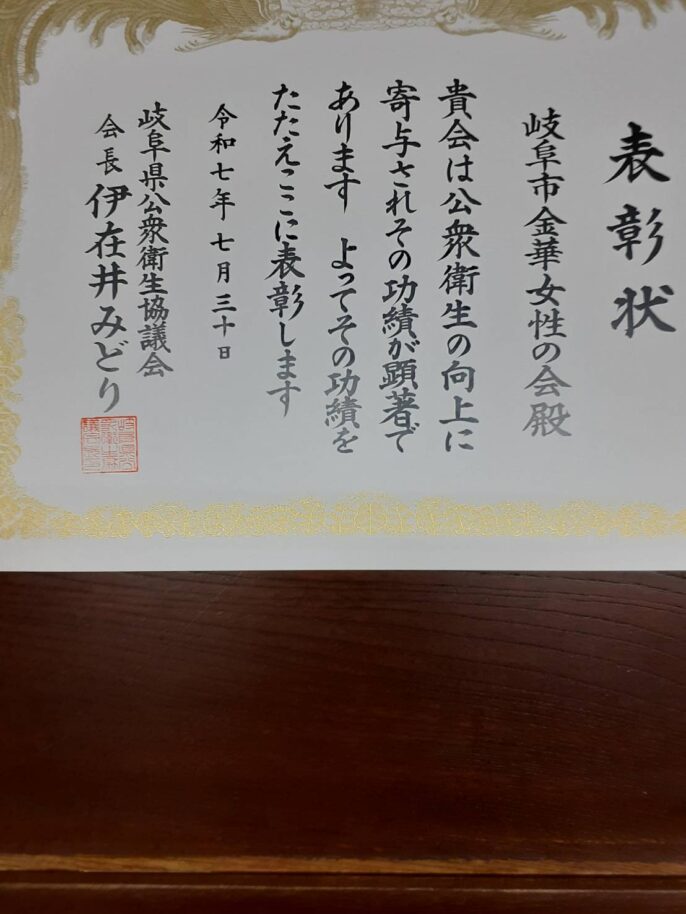 表彰状
岐阜市金華女性の会殿
貴会は公衆衛生の向上に
寄与されその功績が顕著で
あります　よってその功績を
たたえここに表彰します
令和七年七月三十日
岐阜県公衆衛生協議会
会長 伊在井みどり